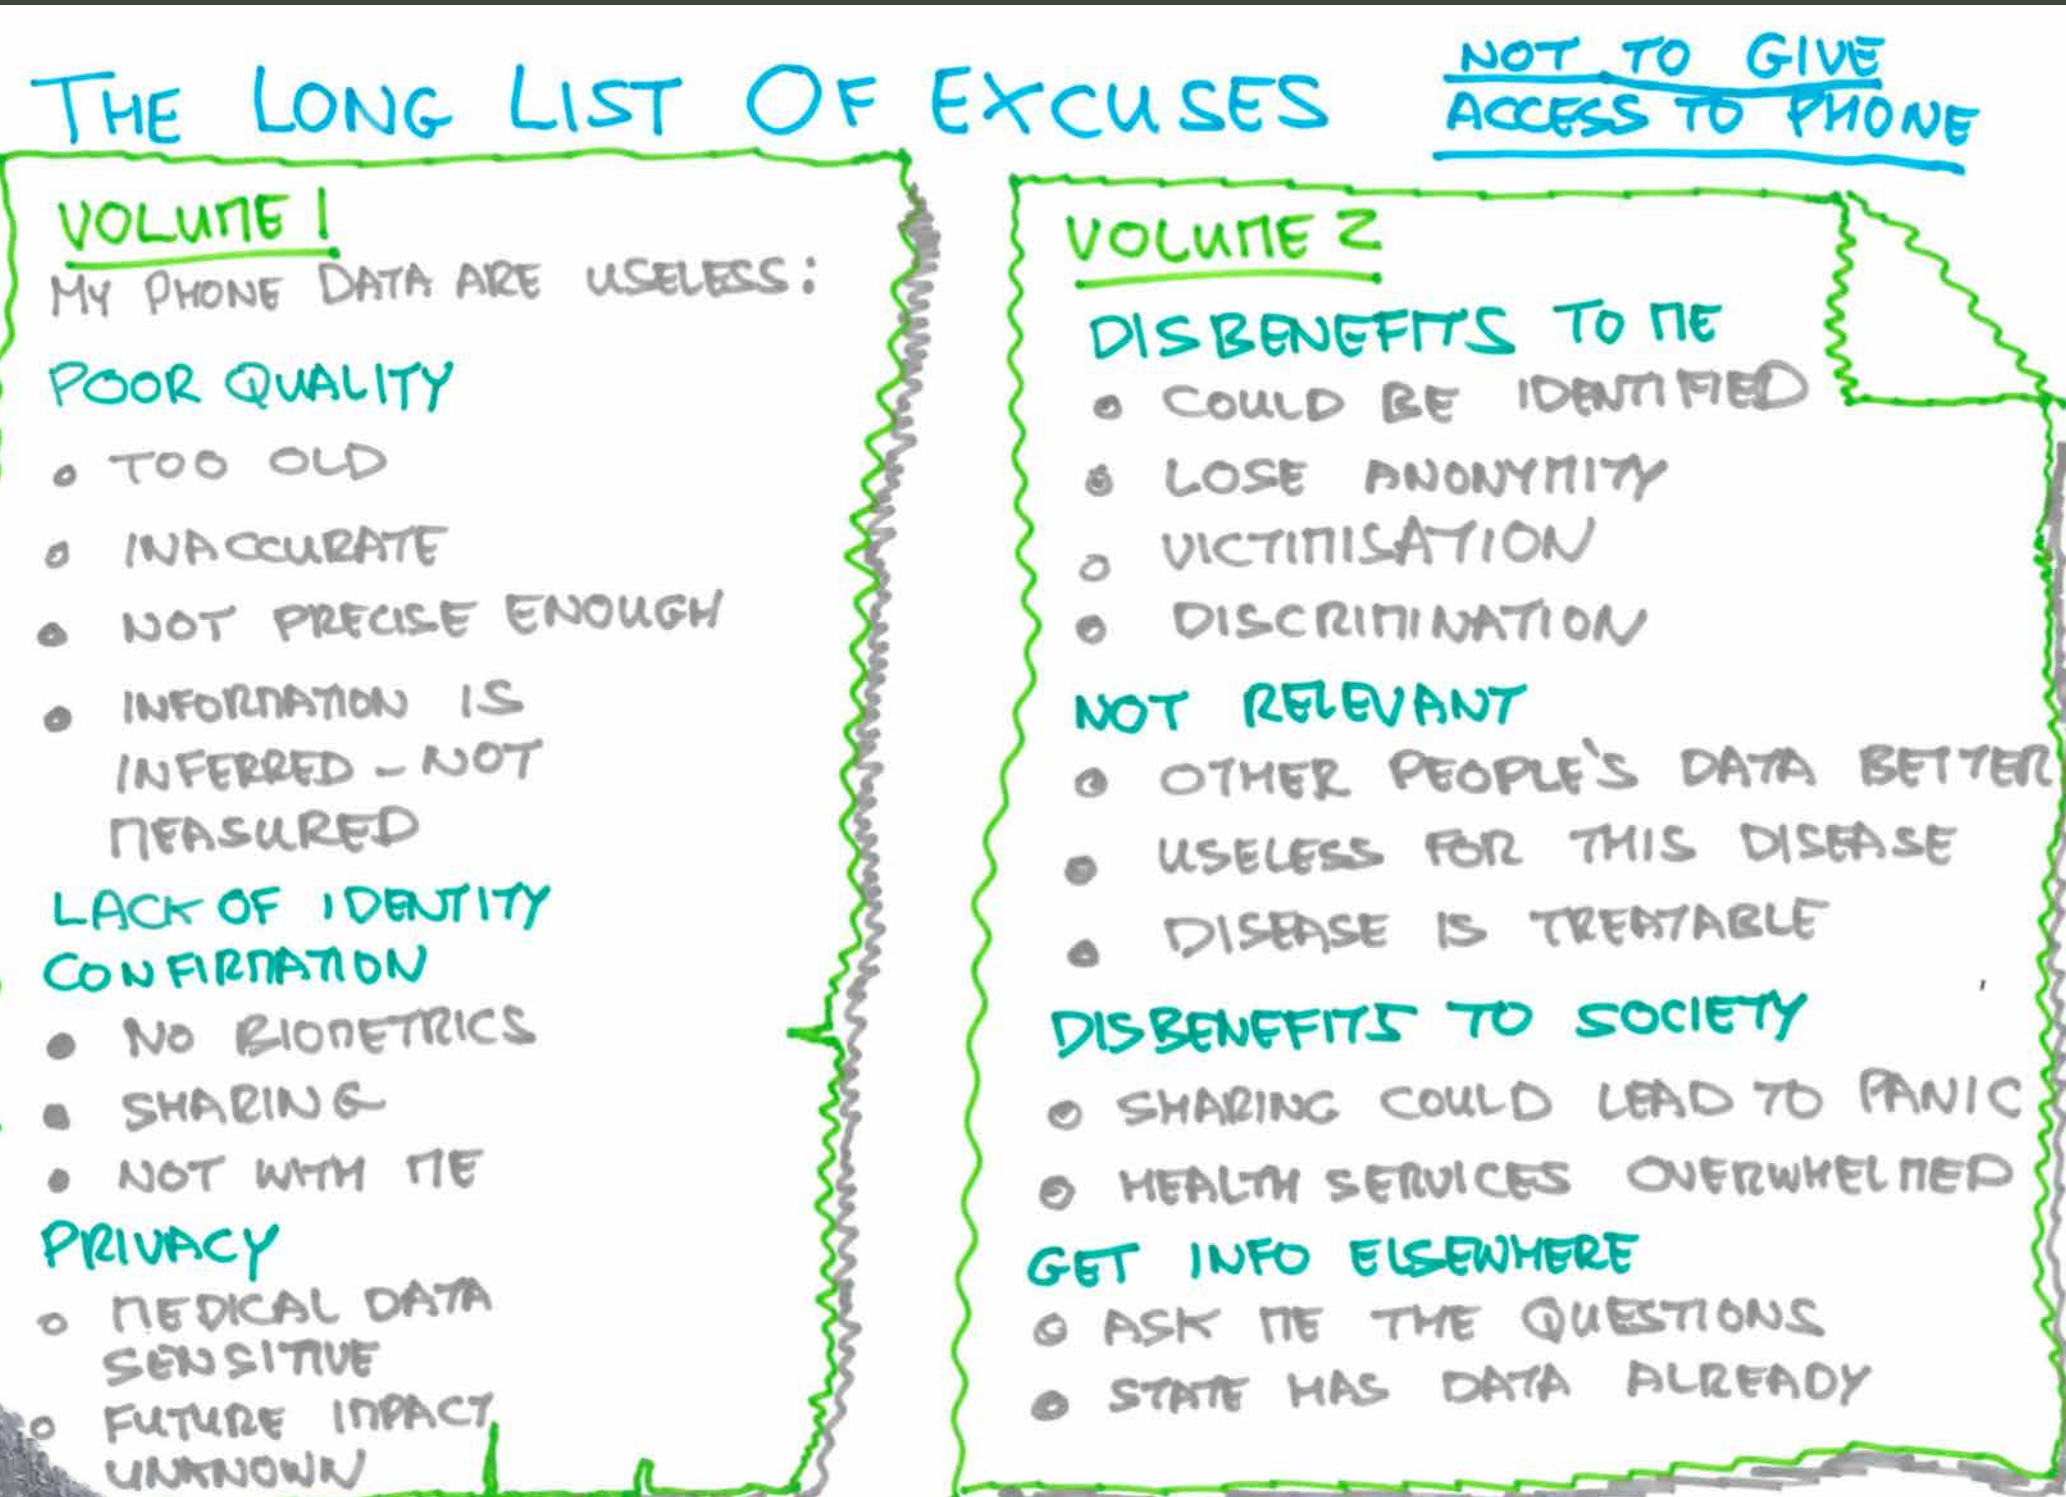 THE LONG LIST OF EXCUSES
NOT TO GIVE
ACCESS TO PHONE
VOLUME 1
MY PHONE DATA ARE USELESS:
POOR QUALITY
• TOO OLD
• INACCURATE
• NOT PRECISE ENOUGH
• INFORMATION IS
INFERRED - NOT
MEASURED
LACK OF IDENTITY
CONFIRMATION
• NO BIOMETRICS
• SHARING
• NOT WITH ME
PRIVACY
• MEDICAL DATA
SENSITIVE
• FUTURE IMPACT
UNKNOWN
VOLUME 2
DISBENEFITS TO ME
• COULD BE IDENTIFIED
• LOSE ANONYMITY
• VICTIMISATION
• DISCRIMINATION
NOT RELEVANT
• OTHER PEOPLE'S DATA BETTER
• USELESS FOR THIS DISEASE
• DISEASE IS TREATABLE
DISBENEFITS TO SOCIETY
• SHARING COULD LEAD TO PANIC
• HEALTH SERVICES OVERWHELMED
GET INFO ELSEWHERE
• ASK ME THE QUESTIONS
• STATE HAS DATA ALREADY